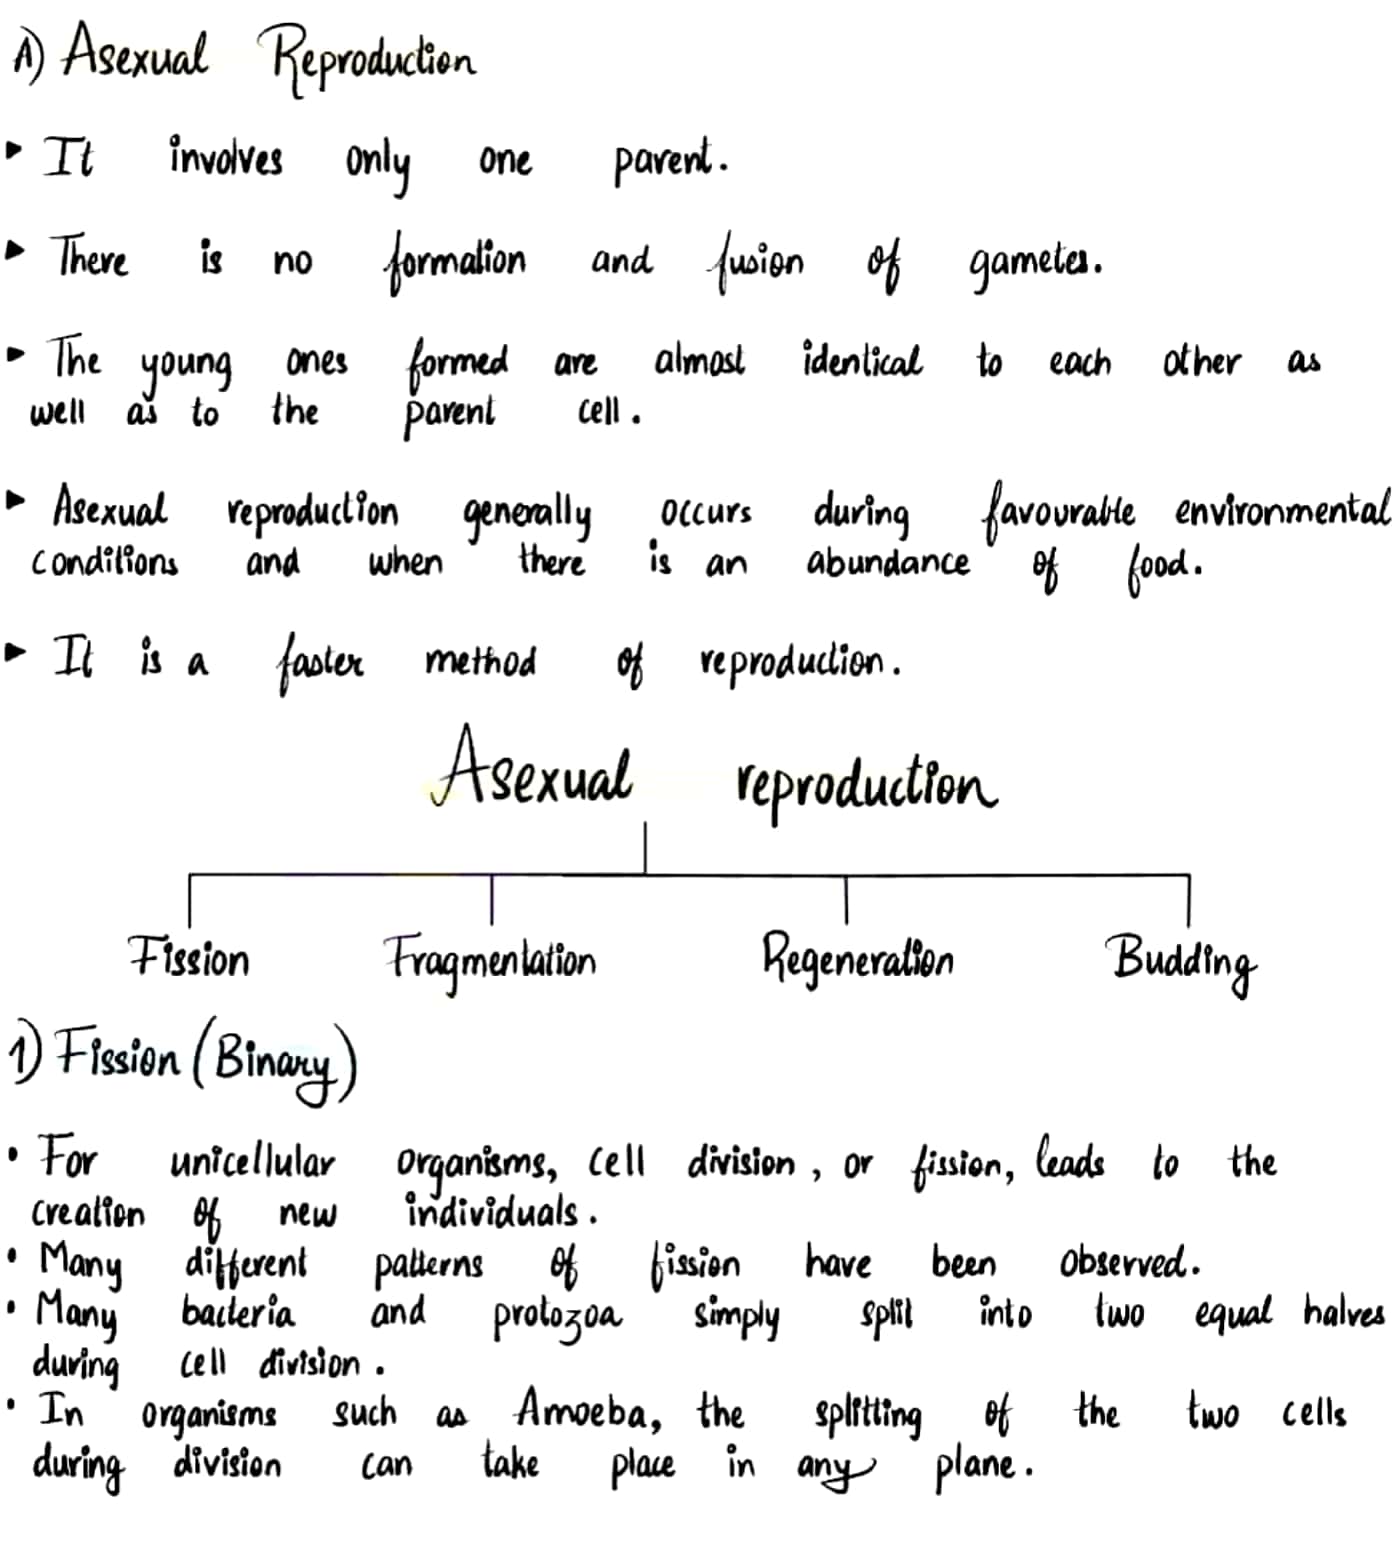 A) Asexual Reproduction
▸ It involves only one parent.
▸ There is no formation and fusion of gametes.
▸ The young ones formed are almost identical to each other as
well as to the parent cell.
▸ Asexual reproduction generally occurs during favourable environmental
conditions and when there is an abundance of food.
▸ It is a faster method of reproduction.
Asexual reproduction
Fission Fragmentation Regeneration Budding
1) Fission (Binary)
• For unicellular organisms, cell division, or fission, leads to the
creation of new individuals.
• Many different patterns of fission have been observed.
• Many bacteria and protozoa simply split into two equal halves
during cell division.
• In organisms such as Amoeba, the splitting of the two cells
during division can take place in any plane.